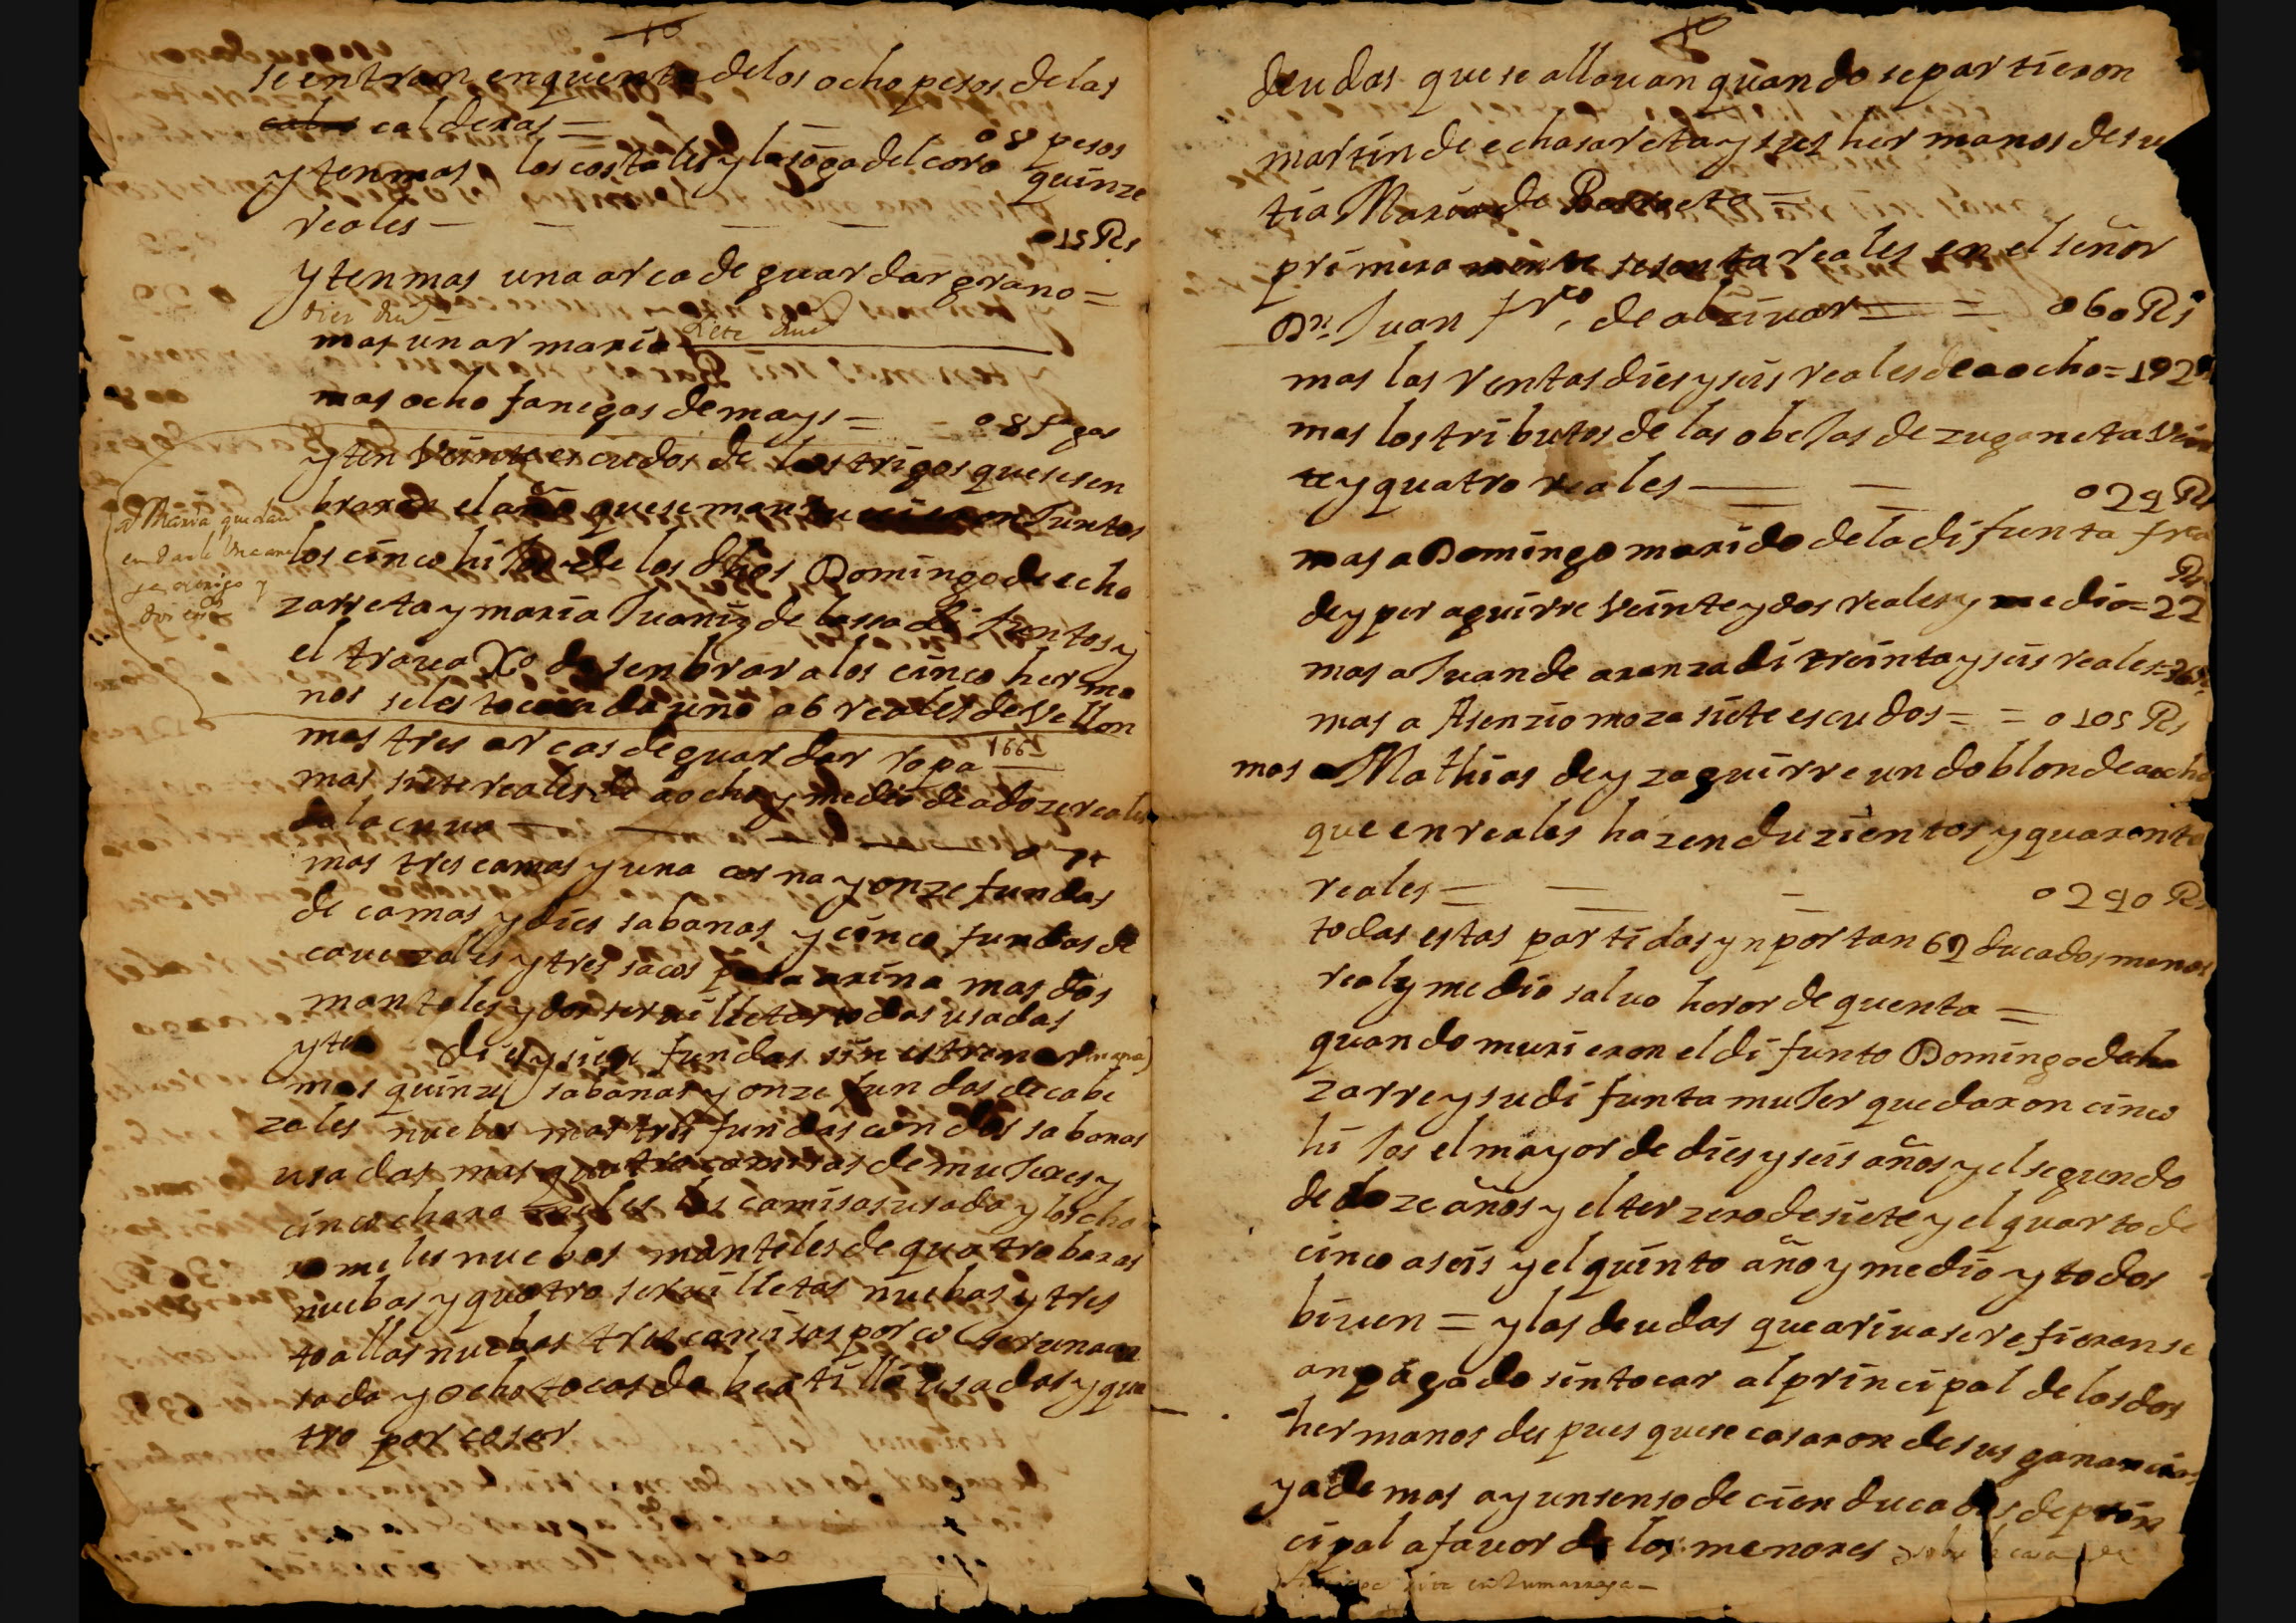 se entran en quenta de los ocho pesos de las
calderas = 08 pesos
yten mas los costales y la soga del coro quinze
reales — — — — 015 Rs
yten mas una arca de guardar grano =
mas un armario siete duc
mas ocho fanegas de mays = 08 fgas
yten veinte escudos de los trigos que se sen
braron el año que se mantuuieron Juntos
los cinco hiJos de los dhos Domingo de echa
zarreta y maria Juaniz de lassa difuntos y
el trauaXo de senbrar a los cinco herma
nos se les toca a cada uno a 6 reales de vellon
a Maria quedan
en darle
mas tres arcas de guardar ropa 1661
mas siete reales de a ocho y medio de a doze reales
de la cuna — — — —
mas tres camas y una cosna y onze fundas
de camas y dies sabanas y cinco fundas de
cauezales y tres sacos para arina mas dos
manteles y dos seruilletas todas usadas
yten dies y siete fundas sin estrenar
mas quinze sabanas y onze fundas de cabe
zales nuebos mas tres fundas con dos sabanas
usadas mas quatro camisas de muJeres y
cinco chara meles las camisas usada y los cha
ra meles nuebos manteles de quatro baras
nuebas y quatro seruilletas nuebas y tres
toallas nuebas tres camisas por coser una
sada y ocho tocas de beatilla usadas y qua
tro por coser
deudas que se allauan quando se partieron
martin de echasareta y sus hermanos de su
tia Maria de Barreeta =
primeramente sesenta reales en el señor
Dn Juan frco de alziuar = = 060 Rs
mas las ventas dies y seis reales de a ocho = 192 Rs
mas los tributos de las obeJas de zuganeta vein
te y quatro reales — — 024 Rs
mas a Domingo marido de la difunta fra
de yper aguirre veinte y dos reales y medio = 22 Rs
mas a Juan de aranzadi treinta y seis reales = 36 Rs
mas a Asenzio moza siete escudos = = 0105 Rs
mas a Mathias de yzaguirre un doblon de a ocho
que en reales hazen duzientos y quarenta
reales = = = 0240 Rs
todas estas partidas ynportan 62 ducados menos
real y medio saluo heror de quenta =
quando murieron el difunto Domingo de cha
zarre y su difunta muJer quedaron cinco
hiJos el mayor de dies y seis años y el segundo
de doze años y el terzero de siete y el quarto de
cinco a seis y el quinto año y medio y todos
biuen = y las deudas que ariua se refieren se
an pagado sin tocar al principal de los dos
hermanos des pues que se casaron de sus ganancias
y ademas ay un senso de cien ducados de prin
cipal a fauor de los menores sobre la casa de
en Zumarraga —